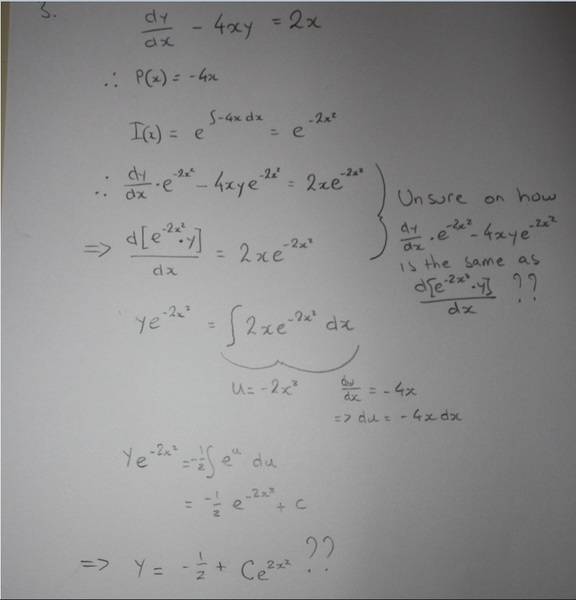 5.
dy/dx - 4xy = 2x
∴ P(x) = -4x
I(x) = e^∫-4x dx = e^-2x²
∴ dy/dx · e^-2x² - 4xye^-2x² = 2xe^-2x²
=> d[e^-2x² · y]/dx = 2xe^-2x²
Unsure on how
dy/dx · e^-2x² - 4xye^-2x²
is the same as
d[e^-2x² · y]/dx ??
ye^-2x² = ∫2xe^-2x² dx
u = -2x² du/dx = -4x
=> du = -4x dx
ye^-2x² = -1/2 ∫e^u du
= -1/2 e^-2x² + C
=> y = -1/2 + Ce^2x² ??